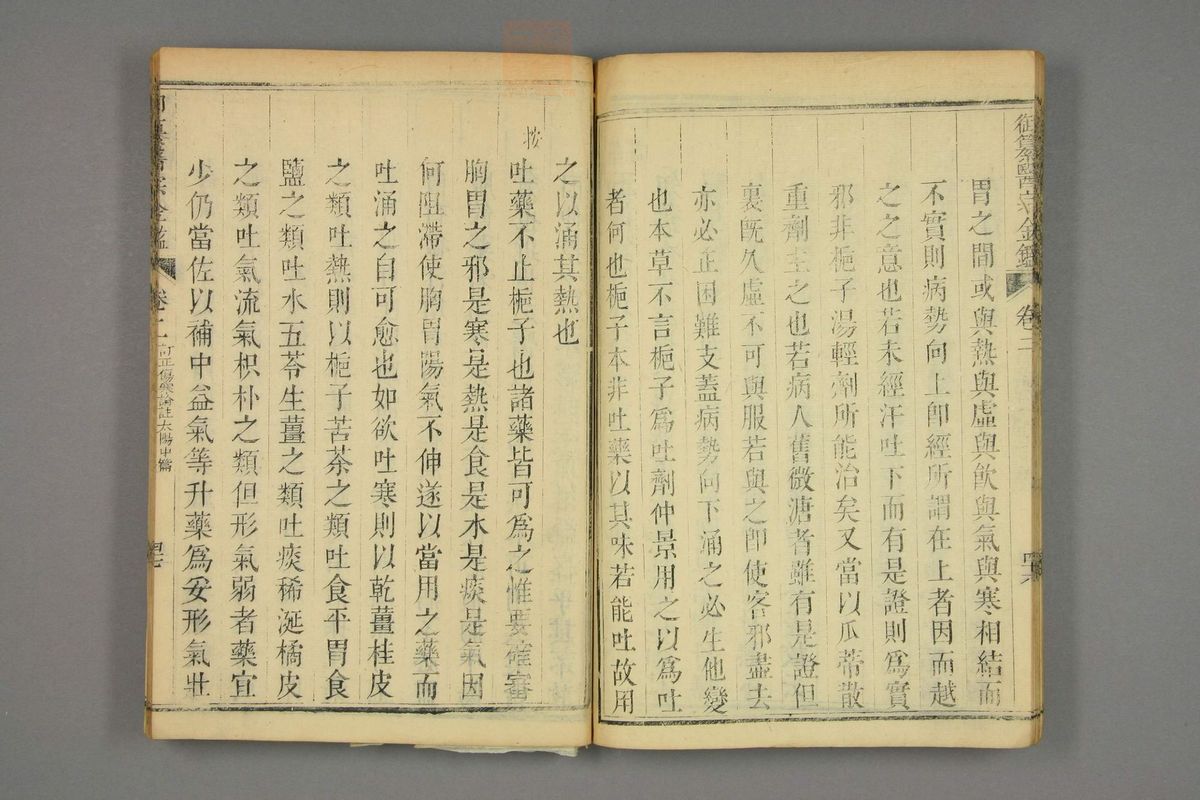 御纂醫宗金鑑 卷二 四六
胃之間或與熱與虛與飲與氣與寒相結而
不實則病勢向上卽經所謂在上者因而越
之之意也若未經汗吐下而有是證則爲實
邪非梔子湯輕劑所能治矣又當以瓜蒂散
重劑主之也若病人舊微溏者雖有是證但
裏旣久虛不可與服若與之卽使客邪盡去
亦必正困難支蓋病勢向下涌之必生他變
也本草不言梔子爲吐劑仲景用之以爲吐
者何也梔子本非吐藥以其味若能吐故用
之以涌其熱也
按
吐藥不止梔子也諸藥皆可爲之惟要確審
胸胃之邪是寒是熱是食是水是痰是氣因
何阻滯使胸胃陽氣不伸遂以當用之藥而
吐涌之自可愈也如欲吐寒則以乾薑桂皮
之類吐熱則以梔子苦茶之類吐食平胃食
鹽之類吐水五苓生薑之類吐痰稀涎橘皮
之類吐氣流氣枳朴之類但形氣弱者藥宜
少仍當佐以補中益氣等升藥爲妥形氣壯
醫宗金鑑 卷二 訂正傷寒論註太陽中篇